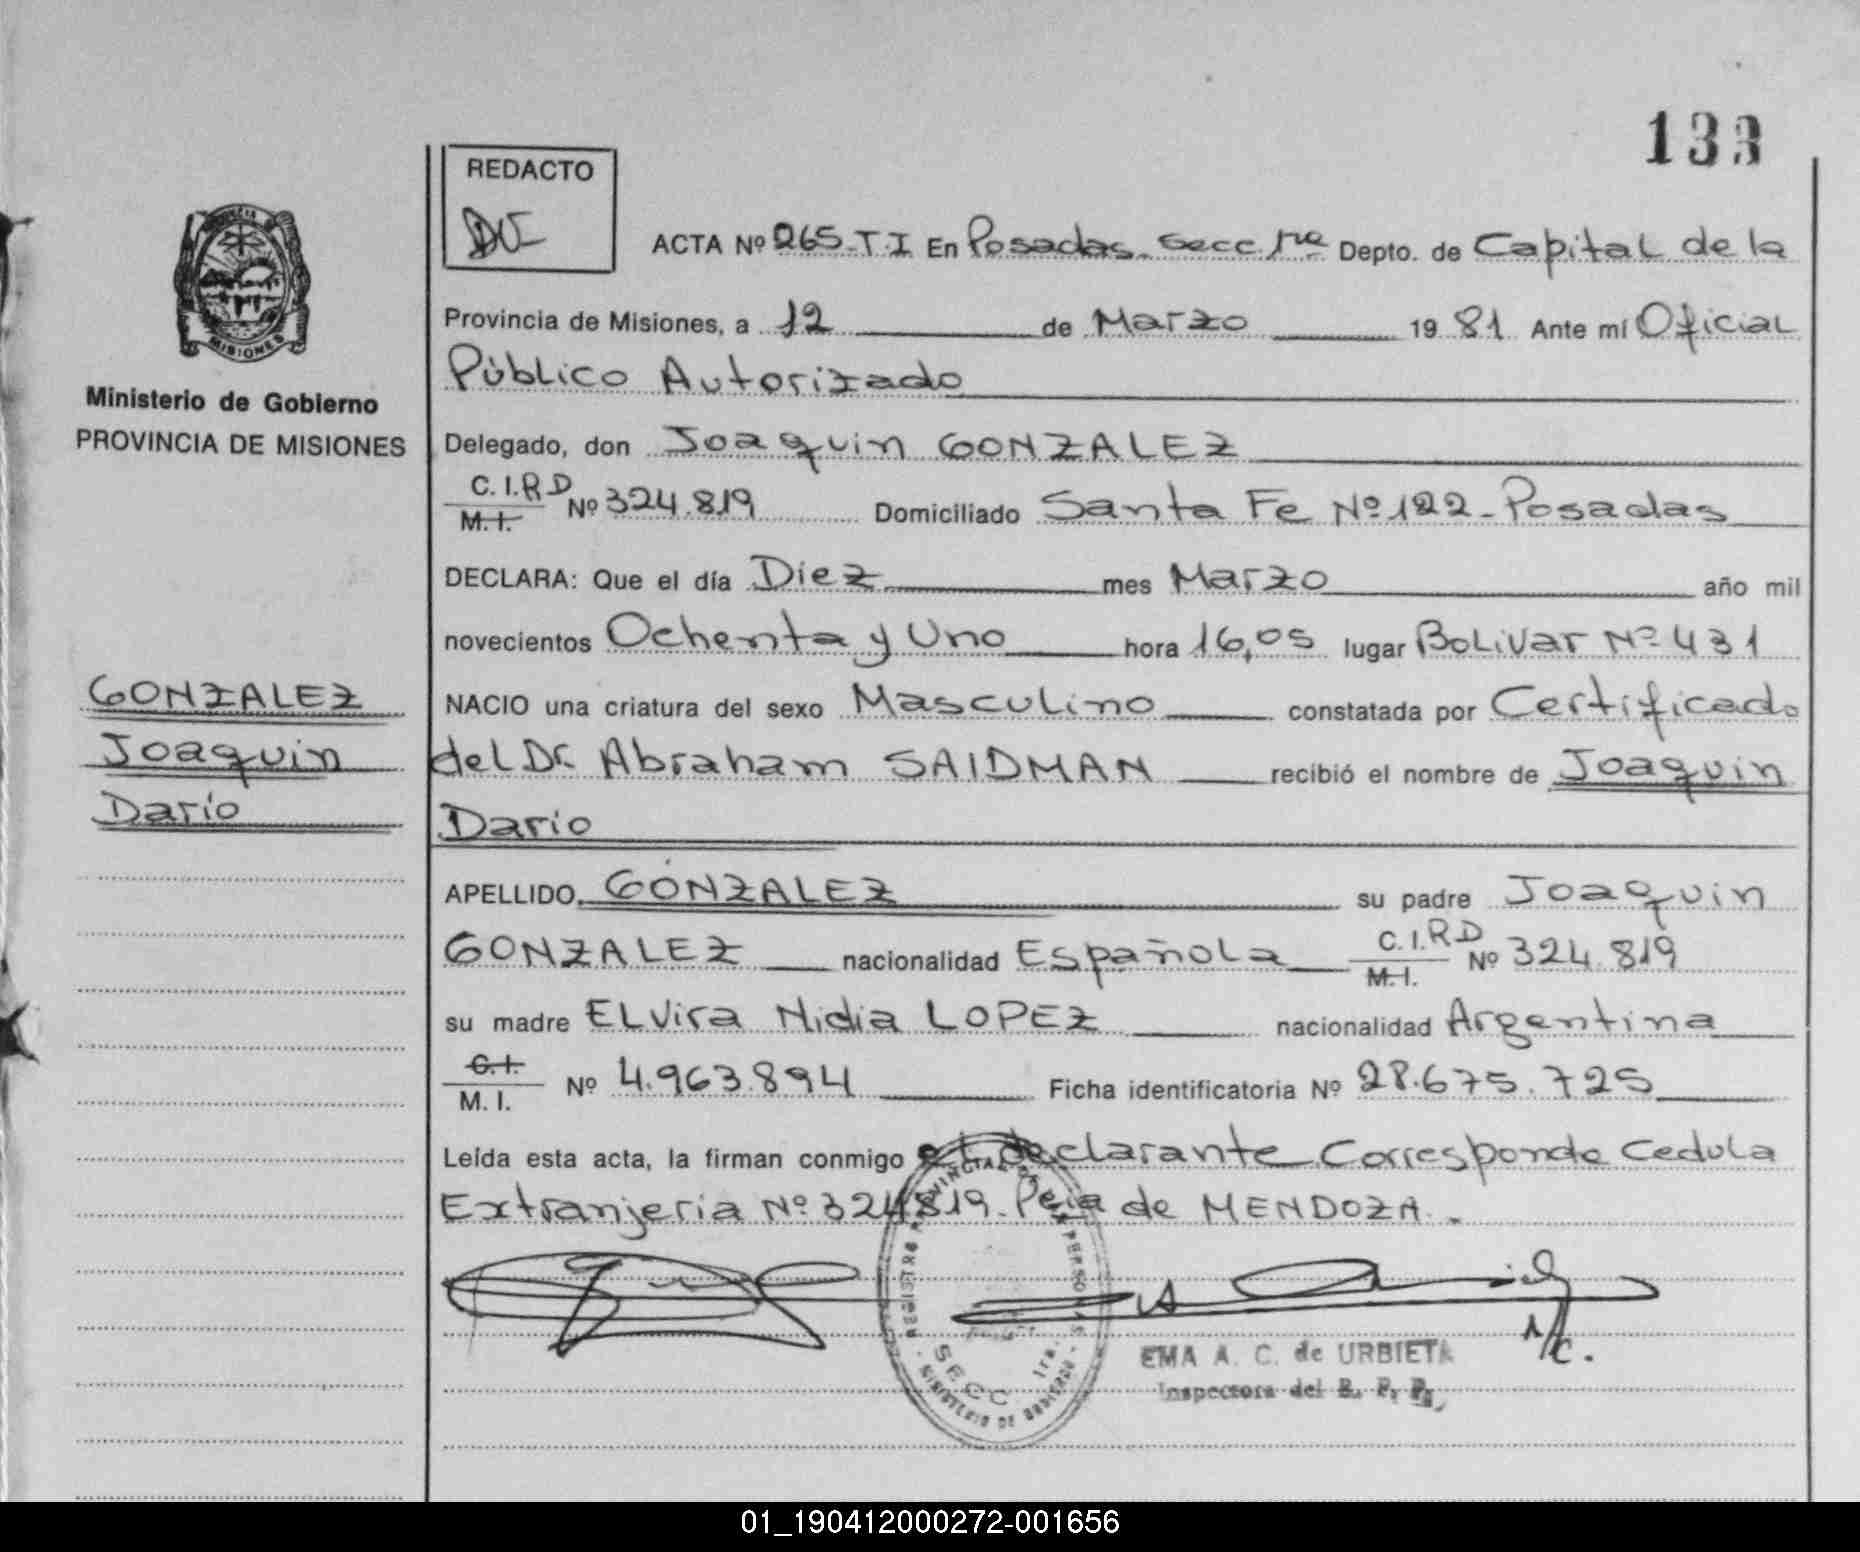 133
REDACTO
ACTA Nº 265-T.I En Posadas. Secc 1ra Depto. de Capital de la
Provincia de Misiones, a 12 de Marzo 1981 Ante mí Oficial
Público Autorizado
Ministerio de Gobierno
PROVINCIA DE MISIONES
MISIONES
Delegado, don Joaquin GONZALEZ
C.I.R.D
M.I. Nº 324.819 Domiciliado Santa Fe Nº 122 - Posadas
DECLARA: Que el día Diez mes Marzo año mil
novecientos Ochenta y Uno hora 16,05 lugar Bolivar Nº 431
GONZALEZ
Joaquin
Dario
NACIO una criatura del sexo Masculino constatada por Certificado
del Dr. Abraham SAIDMAN recibió el nombre de Joaquin
Dario
APELLIDO, GONZALEZ su padre Joaquin
GONZALEZ nacionalidad Española C.I.R.D
M.I. Nº 324.819
su madre Elvira Nidia LOPEZ nacionalidad Argentina
C.I.
M.I. Nº 4.963.894 Ficha identificatoria Nº 28.675.725
Leída esta acta, la firman conmigo el declarante Corresponde Cedula
Extranjeria Nº 324819. Pcia de MENDOZA.
REGISTRO PROVINCIAL DE LAS PERSONAS
SECC. 1ra.
MINISTERIO DE GOBIERNO
EMA A. C. de URBIETA
Inspectora del R. P. P.
01_190412000272-001656